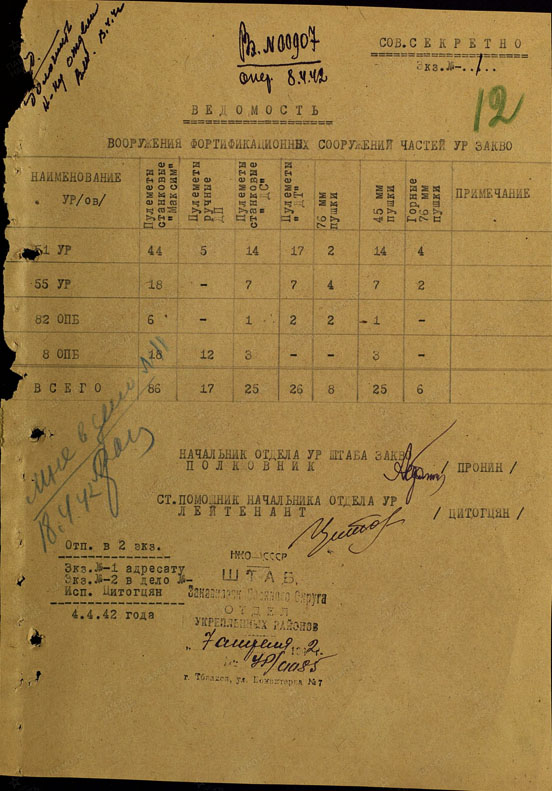 Вх. №00907
опер. 8.4.42
СОВ.СЕКРЕТНО
Экз.№-.1..
12
ВЕДОМОСТЬ
ВООРУЖЕНИЯ ФОРТИФИКАЦИОННЫХ СООРУЖЕНИЙ ЧАСТЕЙ УР ЗАКВО
НАИМЕНОВАНИЕ УР/ов/ Пулеметы станковые "Максим" Пулеметы ручние ДП Пулеметы станковые "ДС" Пулеметы "ДТ" 76 мм пушки 45 мм пушки Горные 76 мм пушки ПРИМЕЧАНИЕ
51 УР 44 5 14 17 2 14 4
55 УР 18 - 7 7 4 7 2
82 ОПБ 6 - 1 2 2 -1 -
8 ОПБ 18 12 3 - - 3 -
ВСЕГО 86 17 25 26 8 25 6
в дело №11
18.4.42
НАЧАЛЬНИК ОТДЕЛА УР ШТАБА ЗАКВО
ПОЛКОВНИК / ПРОНИН /
СТ.ПОМОЩНИК НАЧАЛЬНИКА ОТДЕЛА УР
ЛЕЙТЕНАНТ / ЦИТОГЦЯН /
Отп. в 2 экз.
Экз.№-1 адресату
Экз.№-2 в дело №-
Исп. Цитогцян
4.4.42 года
НКО СССР
ШТАБ
Округа
ОТДЕЛ
УКРЕПЛЕННЫХ РАЙОНОВ
"7 апреля 1942г.
г. Тбилиси, ул. №7